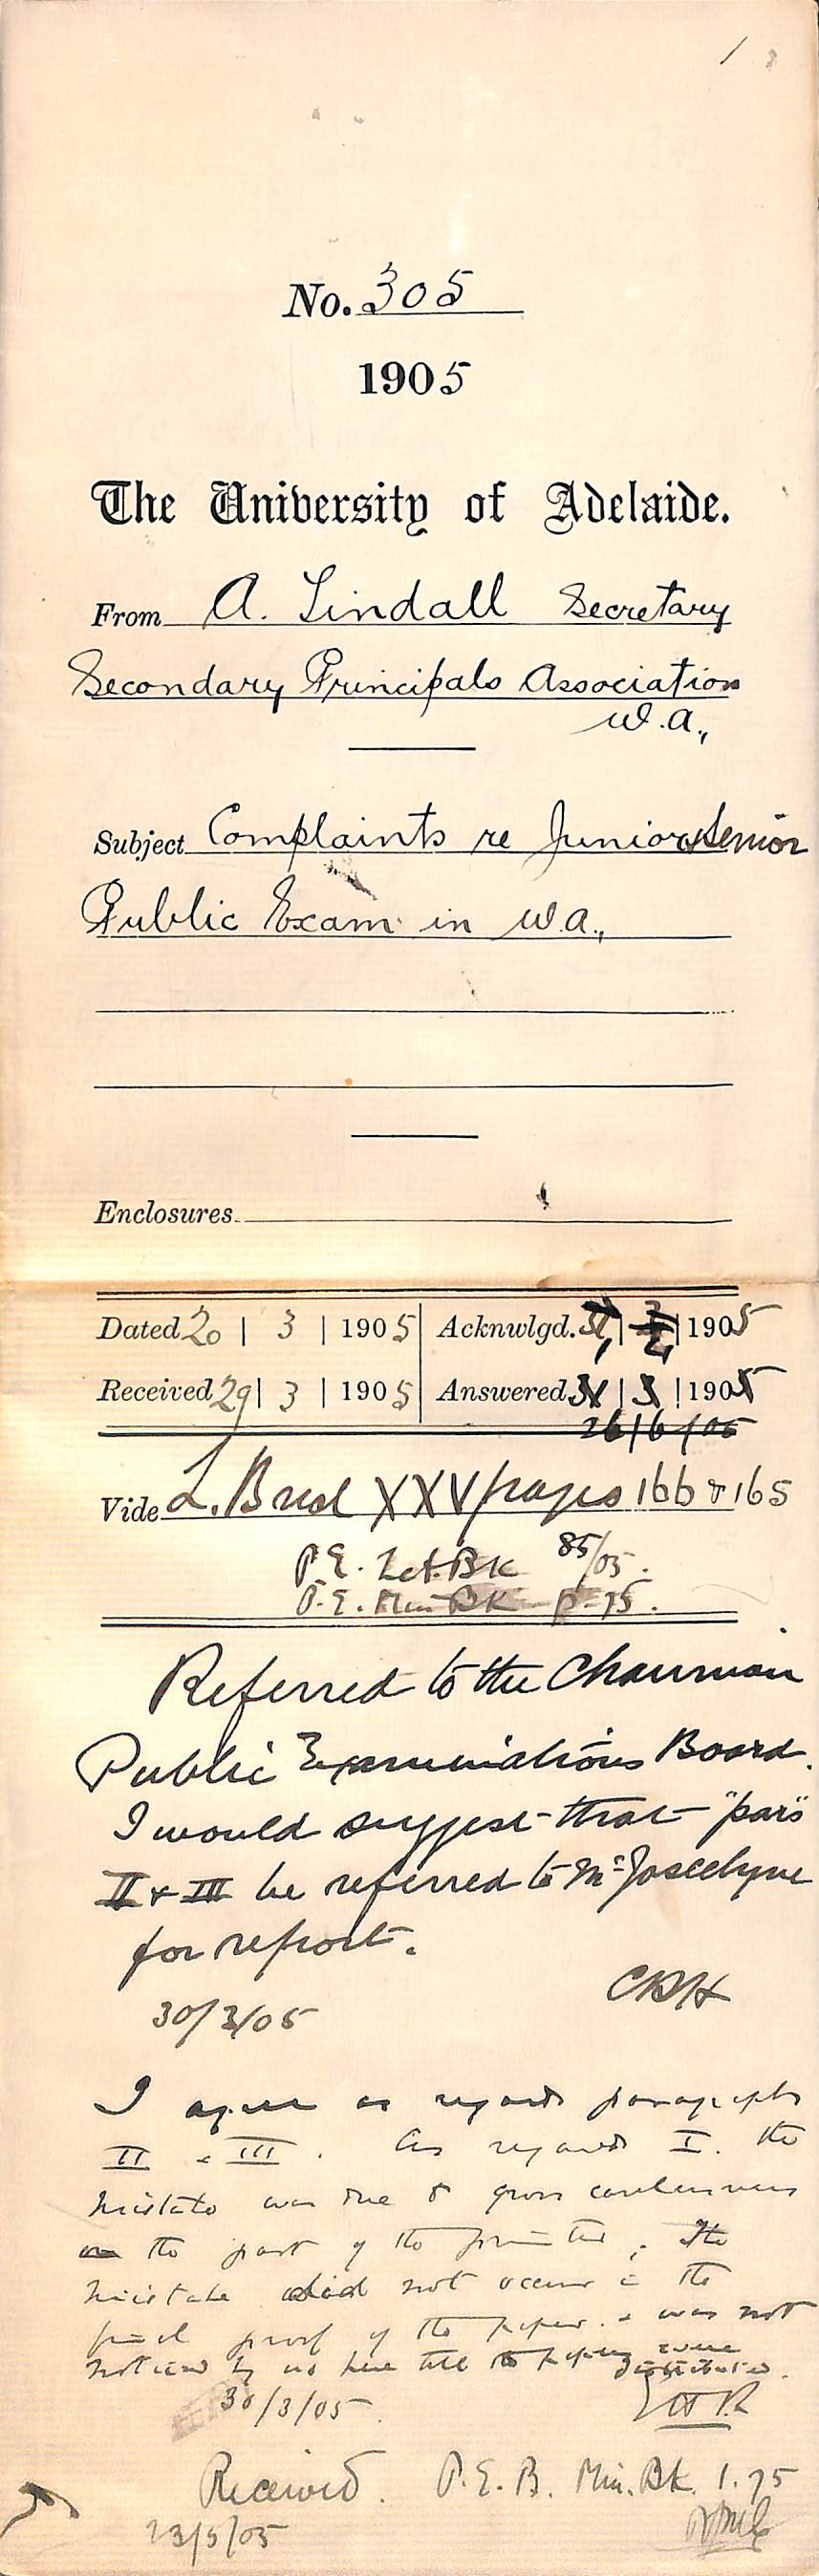 No. 305
1905
The University of Adelaide.
From A. Lindall Secretary
Secondary Principals Association
W.A.,
Subject Complaints re Junior & Senior
Public Exam in W.A.,
Enclosures
Dated 20 | 3 | 1905 Acknwlgd. | 1905
Received 29 | 3 | 1905 Answered 31 | 3 | 1905
26/6/05
Vide L. Book XXV pages 166 & 165
P.E. Let. Bk 85/05.
P.E. Min Bk p-75.
Referred to the Chairman
Public Examinations Board.
I would suggest that "pars"
II & III be referred to Mr Joscelyne
for report.
CRH
30/3/05
I agree as regards paragraphs
II & III. As regards I. the
mistake was due to gross carelessness
on the part of the printer; The
mistake did not occur in the
final proof of the paper. & was not
noticed by us here till the papers were
distributed.
30/3/05
Received. P.E.B. Min. Bk. 1.75
23/5/05